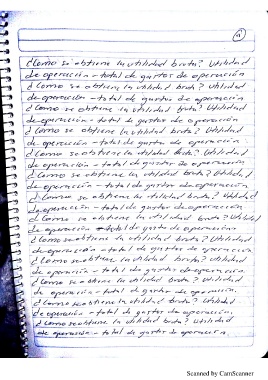 ¿Como se obtiene la utilidad bruta? Utilidad
de operación - total de gastos de operación
¿Como se obtiene la utilidad bruta? Utilidad
de operación - total de gastos de operación
¿Como se obtiene la utilidad bruta? Utilidad
de operación - total de gastos de operación
¿Como se obtiene la utilidad bruta? Utilidad
de operación - total de gastos de operación
¿Como se obtiene la utilidad bruta? Utilidad
de operación - total de gastos de operación
¿Como se obtiene la utilidad bruta? Utilidad
de operación - total de gastos de operación
¿Como se obtiene la utilidad bruta? Utilidad
de operación - total de gastos de operación
¿Como se obtiene la utilidad bruta? Utilidad
de operación total de gastos de operación
¿Como se obtiene la utilidad bruta? Utilidad
de operación - total de gastos de operación
¿Como se obtiene la utilidad bruta? Utilidad
de operación - total de gastos de operación
¿Como se obtiene la utilidad bruta? Utilidad
de operación - total de gastos de operación
¿Como se obtiene la utilidad bruta? Utilidad
de operación - total de gastos de operación
¿Como se obtiene la utilidad bruta? Utilidad
de operación - total de gastos de operación
Scanned by CamScanner